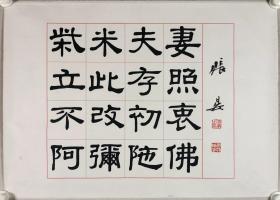 妻照衷佛
夫存初陁
米此改彌
粊立不阿
張